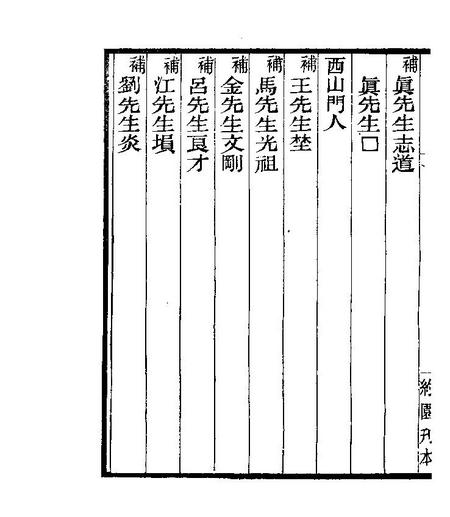 補眞先生志道
眞先生□
西山門人
補王先生埜
補馬先生光祖
補金先生文剛
補呂先生良才
補江先生塤
補劉先生炎
約園刋本